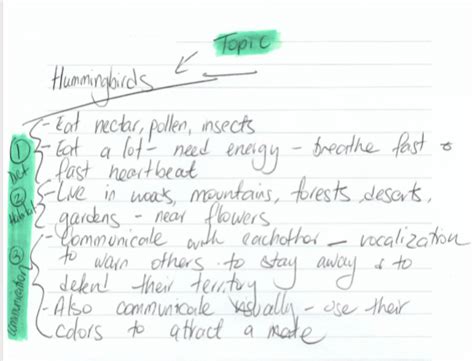 Topic
Hummingbirds
- Eat nectar, pollen, insects
① - Eat a lot - need energy - breathe fast &
Diet fast heartbeat
② - Live in woods, mountains, forests, deserts,
Habitat gardens - near flowers
③ - Communicate with eachother - vocalization
to warn others to stay away & to
defend their territory
communication - Also communicate visually - use their
colors to attract a mate